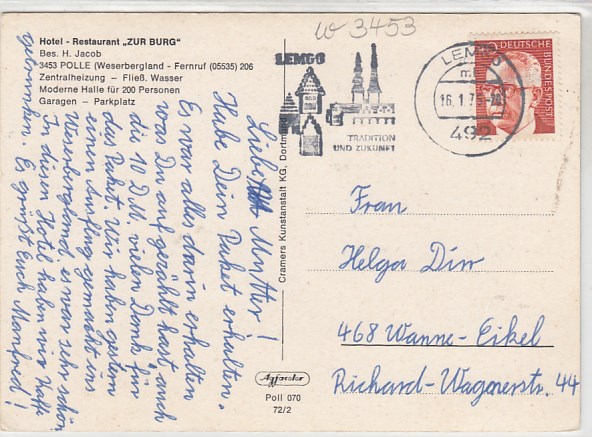 w 3453
Hotel - Restaurant „ZUR BURG"
Bes. H. Jacob
3453 POLLE (Weserbergland - Fernruf (05535) 206
Zentralheizung – Fließ. Wasser
Moderne Halle für 200 Personen
Garagen – Parkplatz
LEMGO
TRADITION
UND ZUKUNFT
LEMGO
16.1.75-20
492
DEUTSCHE
BUNDESPOST
Liebe Mutter!
Habe Dein Paket erhalten.
Es war alles darin erhalten
was Du aufgezählt hast auch
die 10 D.M. vielen Dank für
das Paket. Wir haben gestern
einen Ausflug gemacht ins
Weserbergland, es war sehr schön
In diesen Hotel haben wir Kaffe
getrunken. Es grüßt Euch Manfred!
Cramers Kunstanstalt KG, Dortm
Frau
Helga Dirr
468 Wanne-Eikel
Richard-Wagnerstr. 44
Agfacolor
Poll 070
72/2